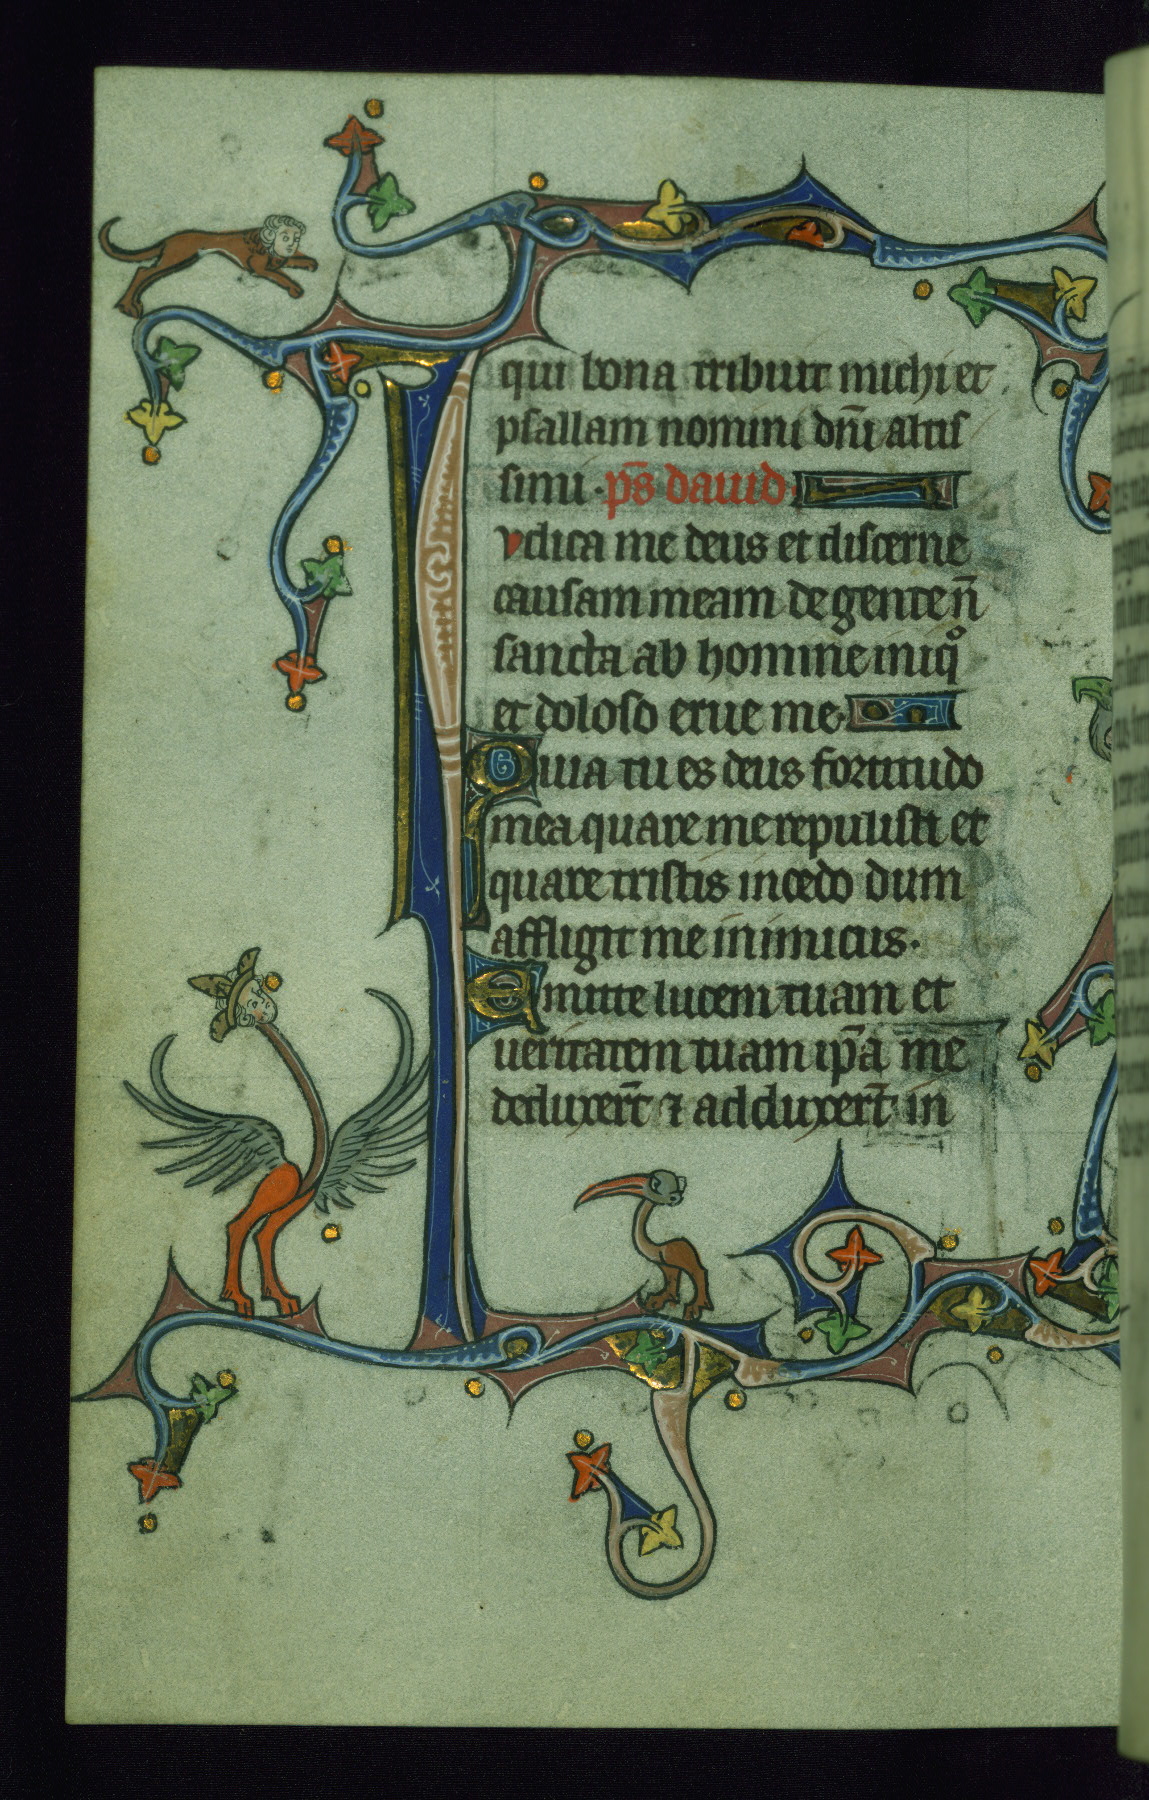 qui bona tribuit michi et
psallam nomini dñi altis
simi · ps̄ dauid ·
Iudica me deus et discerne
causam meam de gente n̄
sancta ab homine iniqͦ
et doloso erue me·
Quia tu es deus fortitudo
mea quare me repulisti et
quare tristis incedo dum
affligit me inimicus·
Emitte lucem tuam et
ueritatem tuam ip̄a me
deduxert̄ ⁊ adduxert̄ in